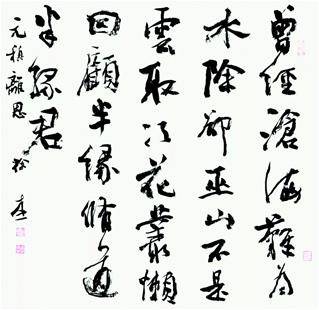 曾經滄海難為
水除卻巫山不是
雲取次花叢懶
回顧半緣脩道
半緣君
元稹離思